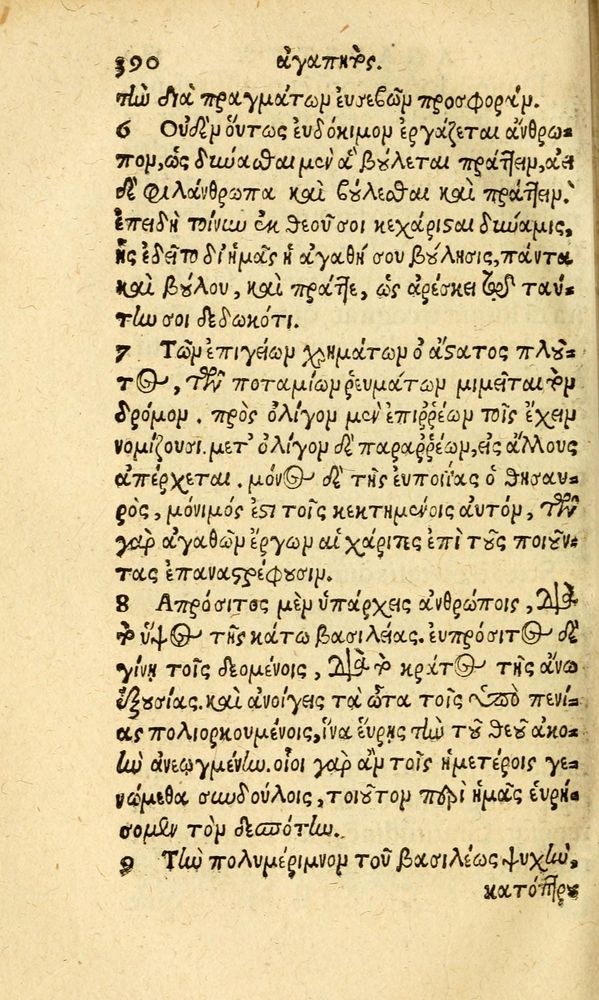 390 ἀγαπητὸς.
τὴν διὰ πραγμάτων ἐυσεβῶν προσφοράν.
6 Οὐδὲν ὅυτως ἐυδόκιμον ἐργάζεται ἄνθρω-
πον, ὡς δύνασθαι μὲν ἃ βούλεται πράττειν, ἀεὶ
δὲ φιλάνθρωπα καὶ βούλεσθαι καὶ πράττειν.
ἐπειδὴ τοίνυν ἐκ θεοῦ σοι κεχάρισται δύναμις,
ἧς ἐδεῖτο δι' ἡμᾶς ἡ ἀγαθή σου βούλησις, πάντα
καὶ βούλου, καὶ πράττε, ὡς ἀρέσκει τῷ ταύ-
την σοι δεδωκότι.
7 Τῶν ἐπιγείων χρημάτων ὁ ἄστατος πλοῦ-
τος, τῶν ποταμίων ῥευμάτων μιμεῖται τὸν
δρόμον. πρὸς ὀλίγον μὲν ἐπιῤῥέων τοῖς ἔχειν
νομίζουσι. μετ' ὀλίγον δὲ παραῤῥέων, εἰς ἄλλους
ἀπέρχεται. μόνος δὲ τῆς ἐυποιίας ὁ θησαυ-
ρὸς, μόνιμός ἐστι τοῖς κεκτημένοις αὐτόν, τῶν
γὰρ ἀγαθῶν ἔργων αἱ χάριτες ἐπὶ τοὺς ποιοῦν-
τας ἐπαναστρέφουσιν.
8 Απρόσιτος μὲν ὑπάρχεις ἀνθρώποις, διὰ
τὸ ὕψος τῆς κάτω βασιλείας. ἐυπρόσιτος δὲ
γίνῃ τοῖς δεομένοις, διὰ τὸ κράτος τῆς ἄνω
ἐξουσίας. καὶ ἀνοίγεις τὰ ὦτα τοῖς ὑπὸ πενί-
ας πολιορκουμένοις, ἵνα ἕυρῃς τὴν τοῦ θεοῦ ἀκο-
ὴν ἀνεῳγμένην. οἷοι γὰρ ἂν τοῖς ἡμετέροις γε-
νώμεθα συνδούλοις, τοιοῦτον περὶ ἡμᾶς ἑυρή-
σομεν τὸν δεσπότην.
9 Τὴν πολυμέριμνον τοῦ βασιλέως ψυχὴν,
κατόπτρου